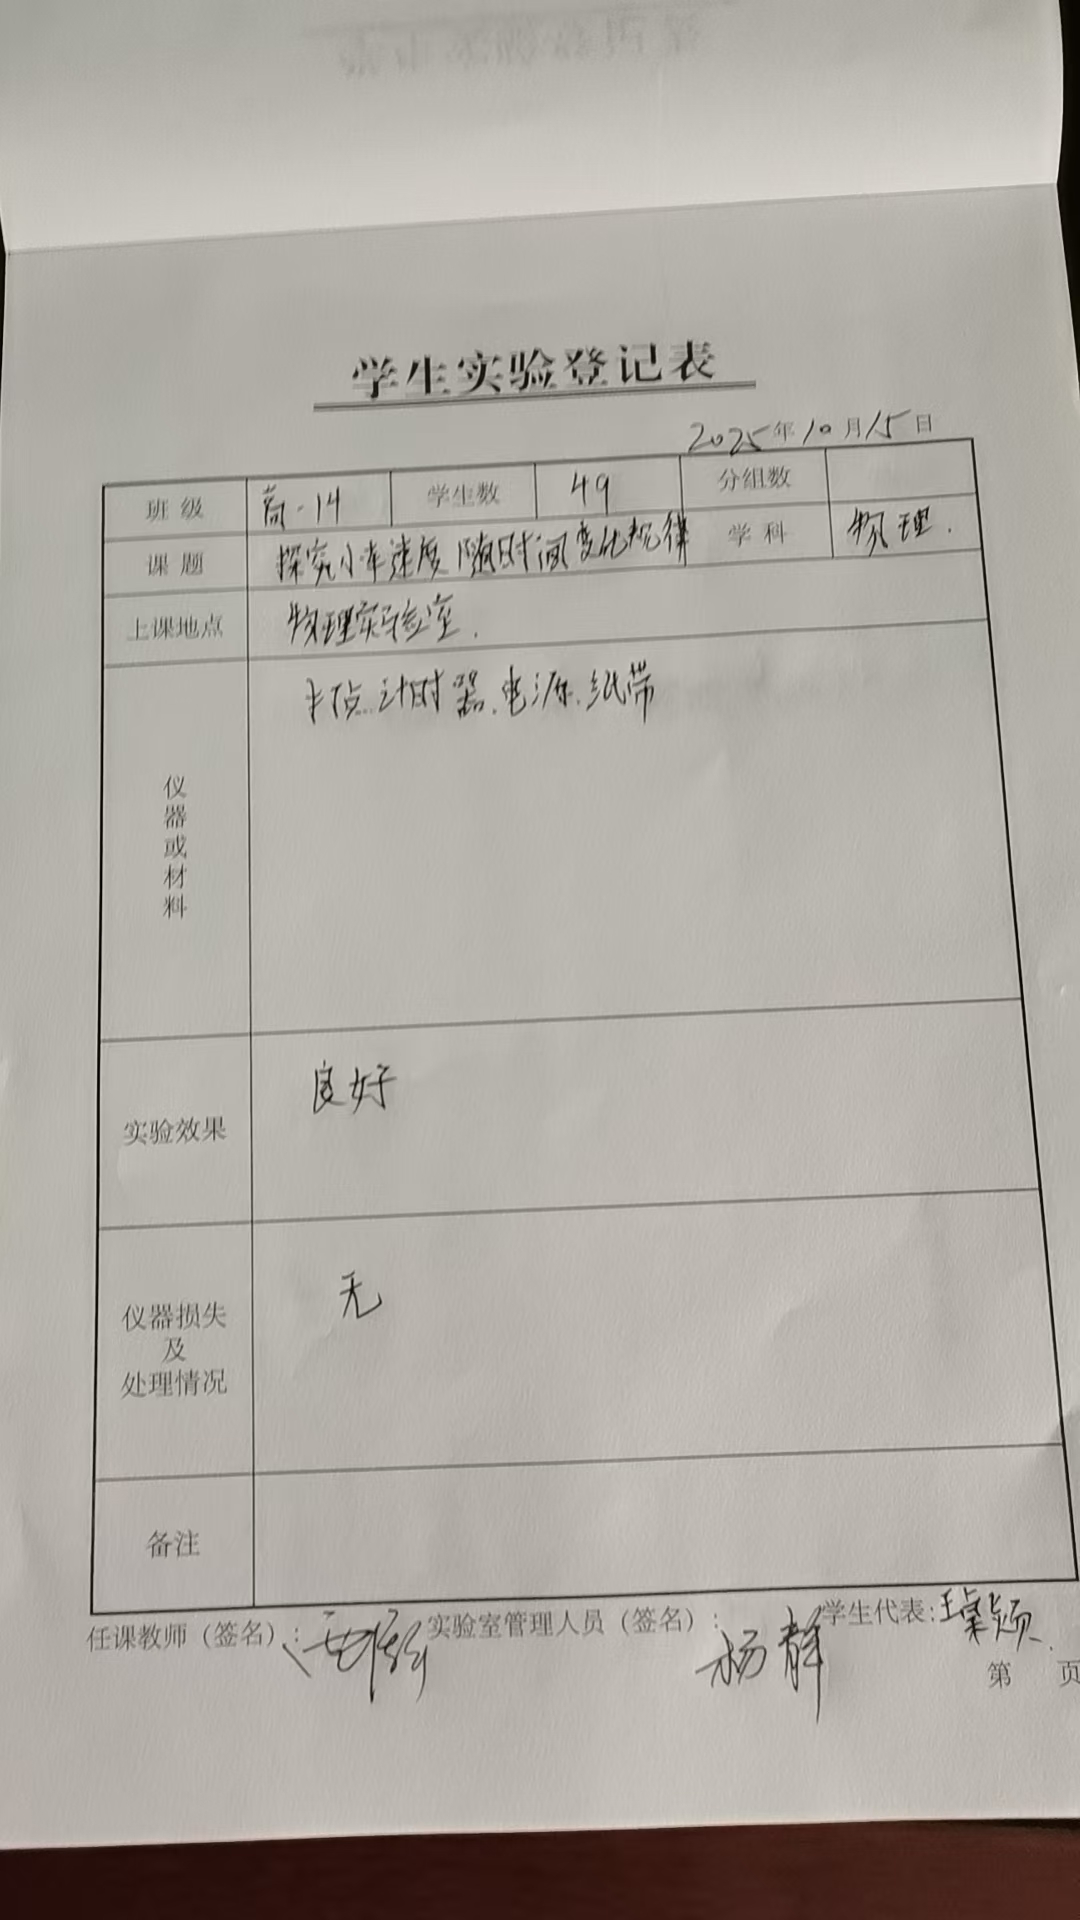 学生实验登记表
2025年10月15日
班级 高一14 学生数 49 分组数
课题 探究小车速度随时间变化规律 学科 物理.
上课地点 物理实验室.
仪器或材料 打点计时器、电源、纸带
实验效果 良好
仪器损失
及
处理情况 无
备注
任课教师（签名）： 实验室管理人员（签名）：杨静 学生代表：
第 页